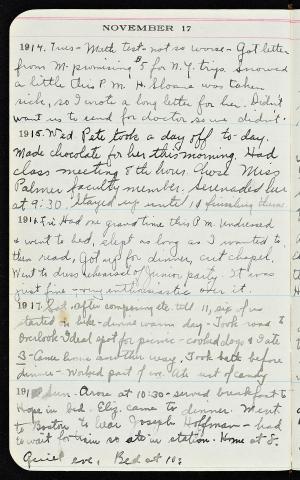 NOVEMBER 17
1914. Tues - Math test - not so worse - Got letter
from M. promising $5 for N.Y. trip. Snowed
a little this P.M. H. Sloane was taken
sick, so I wrote a long letter for her. Didn't
want us to send for doctor so we didn't.
1915. Wed. Pete took a day off to-day.
Made chocolate for her this morning. Had
class meeting & the hours. Chose Miss
Palmer faculty member. Serenaded her
at 9:30. Stayed up until 10 finishing theme
1916. Fri. Had one grand time this P.M. Undressed
& went to bed, slept as long as I wanted to,
then read. Got up for dinner, cut chapel.
Went to dress rehearsal of Junior party. It was
just fine - very enthusiastic over it.
1917. Sat. after composing etc. till 11, six of us
started on hike - divine warm day - Took road to
Overlook. Ideal spot for picnic - cooked dogs & I ate
3 - Came home another way. Took bath before
dinner - Worked part of eve. Ate lots of candy
191 Sun. Arose at 10:30 - served breakfast to
Hope in bed. Eliz. came to dinner. Went
to Boston to hear Joseph Hoffman - had
to wait for train so ate in station. Home at 8.
Quiet eve. Bed at 10: